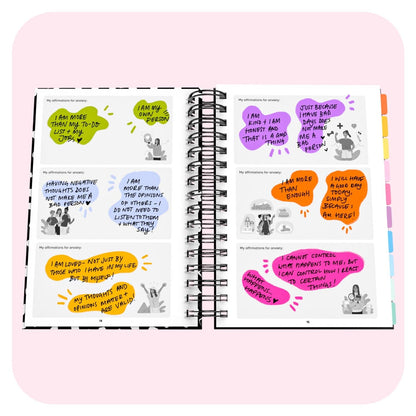 My affirmations for anxiety:
I AM MORE
THAN MY TO-DO
LIST + MY
JOB ♥
I AM MY
OWN
PERSON!
My affirmations for anxiety:
HAVING NEGATIVE
THOUGHTS DOES
NOT MAKE ME A
BAD PERSON ♥
I AM
MORE THAN
THE OPINIONS
OF OTHERS - I
DO NOT NEED TO
LISTEN TO THEM
+ WHAT THEY
SAY!
My affirmations for anxiety:
I AM LOVED - NOT JUST BY
THOSE WHO I HAVE IN MY LIFE
BUT BY MYSELF!
MY THOUGHTS AND
OPINIONS MATTER +
ARE VALID!
My affirmations for anxiety:
I AM
KIND + I AM
HONEST AND
THAT IS A GOOD
THING
JUST BECAUSE
I HAVE BAD
DAYS DOES
NOT MAKE
ME A
BAD PERSON!
My affirmations for anxiety:
I AM MORE
THAN
ENOUGH
I WILL HAVE
A GOOD DAY
TODAY,
SIMPLY
BECAUSE I
AM HERE!
My affirmations for anxiety:
I CANNOT CONTROL
WHAT HAPPENS TO ME, BUT
I CAN CONTROL HOW I REACT
TO CERTAIN
THINGS!
WHAT
HAPPENS,
HAPPENS ♥